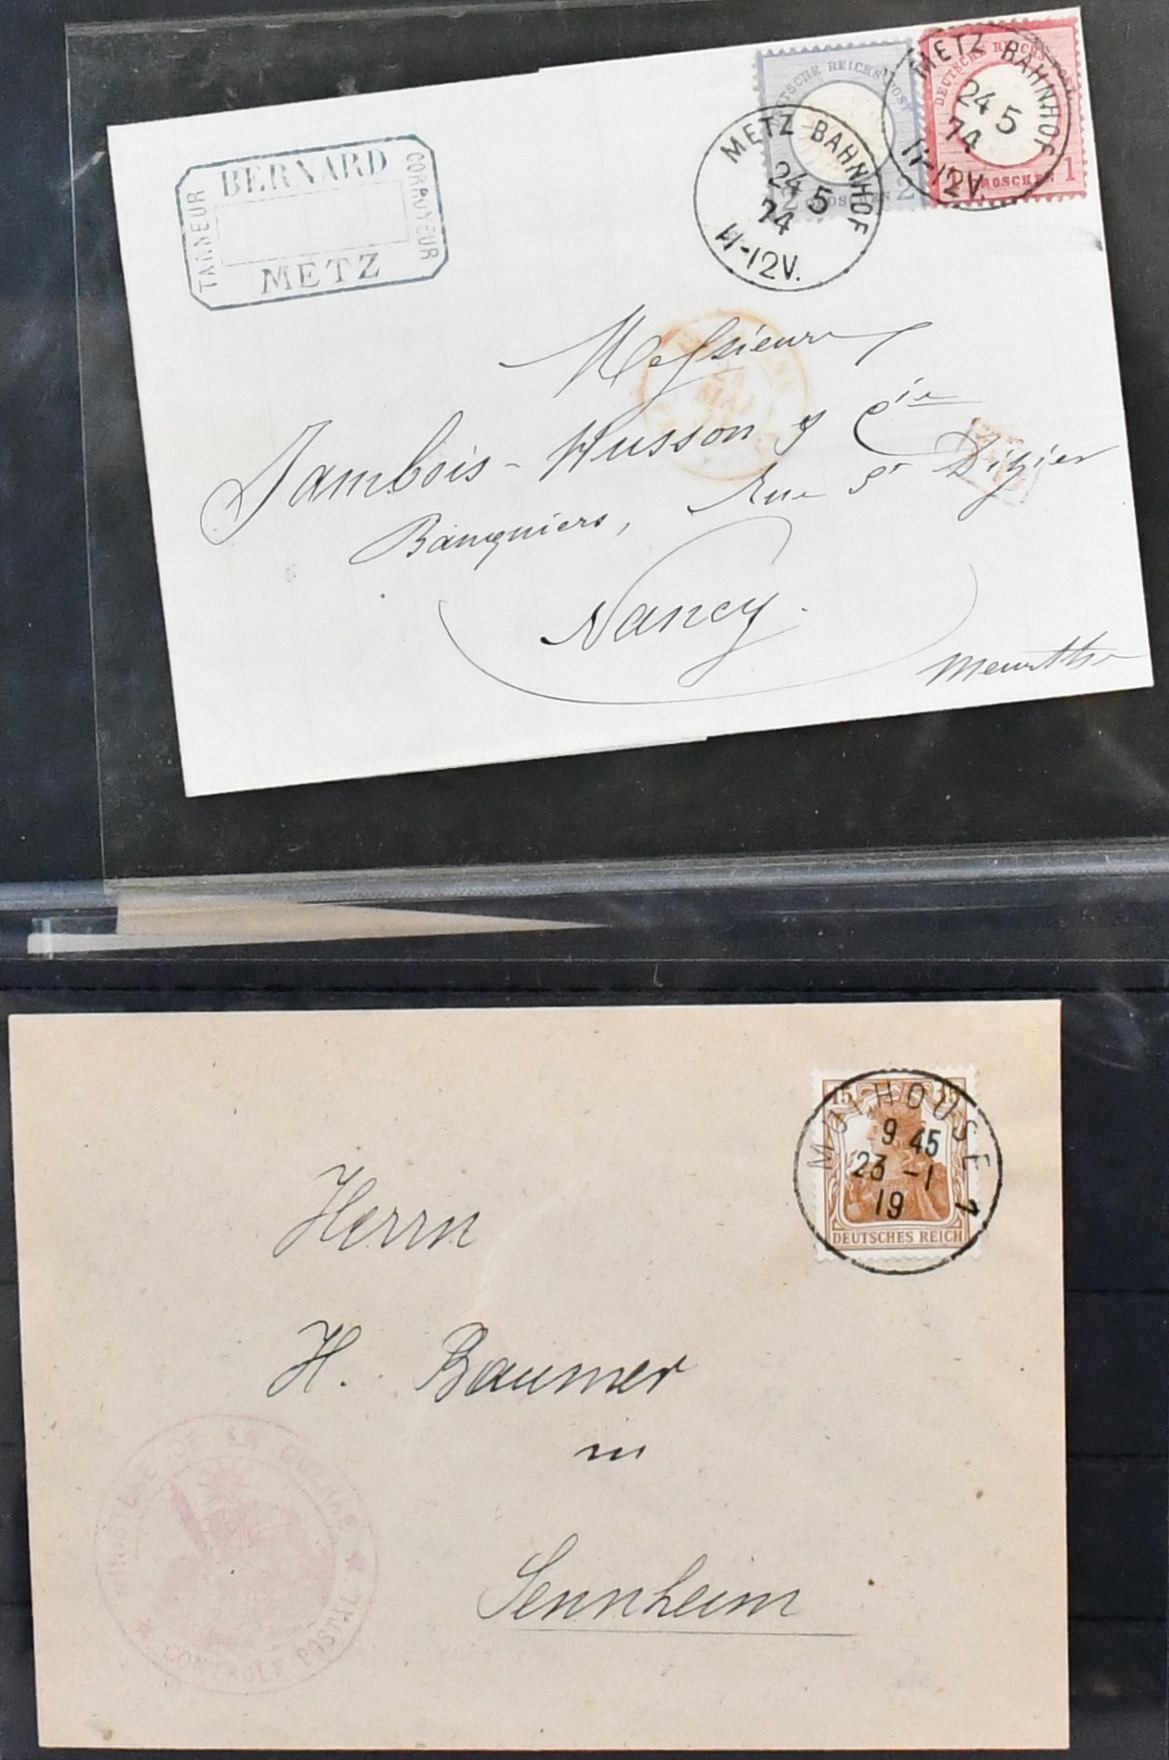 BERNARD
TANNEUR
CORROYEUR
METZ
DEUTSCHE REICHS-POST
2 GROSCHEN 2
DEUTSCHE REICHS-POST
GROSCHEN 1
METZ BAHNHOF
24 5
74
11-12V.
METZ BAHNHOF
24 5
74
11-12V.
MAI
Messieurs
Jambois-Husson & Cie
Banquiers, Rue St Dizier
Nancy.
Meurthe
15 15
DEUTSCHES REICH
MULHOUSE 1
9 45
23 -1
19
Herrn
H. Baumer
in
Sennheim
MINISTERE DE LA GUERRE
CONTROLE POSTAL